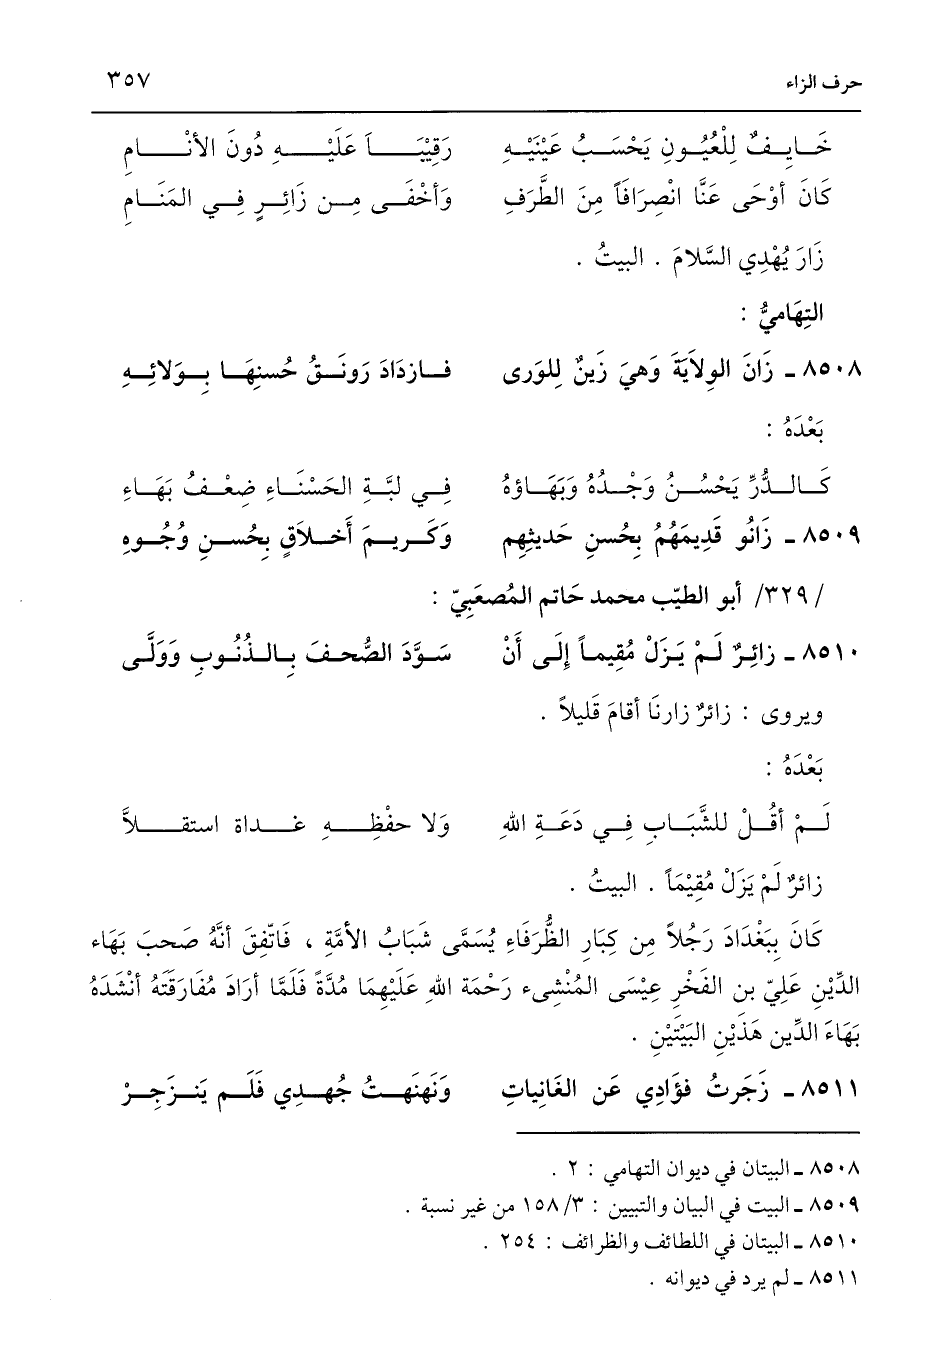 حرف الزاء ٣٥٧
خَايِفٌ لِلْعُيُونِ يَحْسَبُ عَيْنَيْهِ رَقِيْبَاً عَلَيْهِ دُونَ الأنْامِ
كَانَ أوْحَى عَنَّا انْصِرَافَاً مِنَ الطَّرَفِ وَأخْفَى مِن زَائِرٍ فِي المَنَامِ
زَارَ يُهْدِي السَّلامَ . البيتُ .
التِهَاميُّ :
٨٥٠٨ ـ زَانَ الوِلاَيَةَ وَهيَ زَينٌ لِلوَرى فازدَادَ رَونَقُ حُسنِهَا بِوَلائِهِ
بَعْدَهُ :
كَالدُّرِّ يَحْسُنُ وَجْدُهُ وَبَهَاؤهُ فِي لبَّةِ الحَسْنَاءِ ضِعْفُ بَهَاءِ
٨٥٠٩ ـ زَانُو قَدِيمَهُمُ بِحُسنِ حَديثِهِم وَكَريمَ أَخلاَقٍ بِحُسنِ وُجُوهِ
/ ٣٢٩/ أبو الطيّب محمد حَاتم المُصعَبِيّ :
٨٥١٠ ـ زائِرٌ لَمْ يَزَلْ مُقِيماً إِلَى أَنْ سَوَّدَ الصُّحفَ بِالذُنُوبِ وَوَلَّى
ويروى : زائرٌ زارنَا أقامَ قَليلاً .
بَعْدَهُ :
لَمْ أقُلْ للشَّبَابِ فِي دَعَةِ اللهِ وَلا حفْظِهِ غداة استقلاَّ
زائرٌ لَمْ يَزَلْ مُقِيْمَاً . البيتُ .
كَانَ بِبَغْدَادَ رَجُلاً مِن كِبَارِ الظُّرفَاءِ يُسَمَّى شَبَابُ الأمَّةِ ، فَاتّفِقَ أنَّهُ صَحبَ بَهَاء
الدِّيْنِ عَلِيّ بن الفَخْرِ عِيْسَى المُنْشِىء رَحْمَة اللهِ عَلَيْهِمَا مُدَّةً فَلَمَّا أرَادَ مُفَارَقَتَهُ أنْشَدَهُ
بَهَاءَ الدِّين هَذَيْنِ البَيْتَيْنِ .
٨٥١١ ـ زَجَرتُ فؤَادِي عَن الغَانِيَاتِ وَنَهنَهتُ جُهدِي فَلَم يَنزَجِرْ
٨٥٠٨ ـ البيتان في ديوان التهامي : ٢ .
٨٥٠٩ ـ البيت في البيان والتبيين : ٣/ ١٥٨ من غير نسبة .
٨٥١٠ ـ البيتان في اللطائف والظرائف : ٢٥٤ .
٨٥١١ ـ لم يرد في ديوانه .